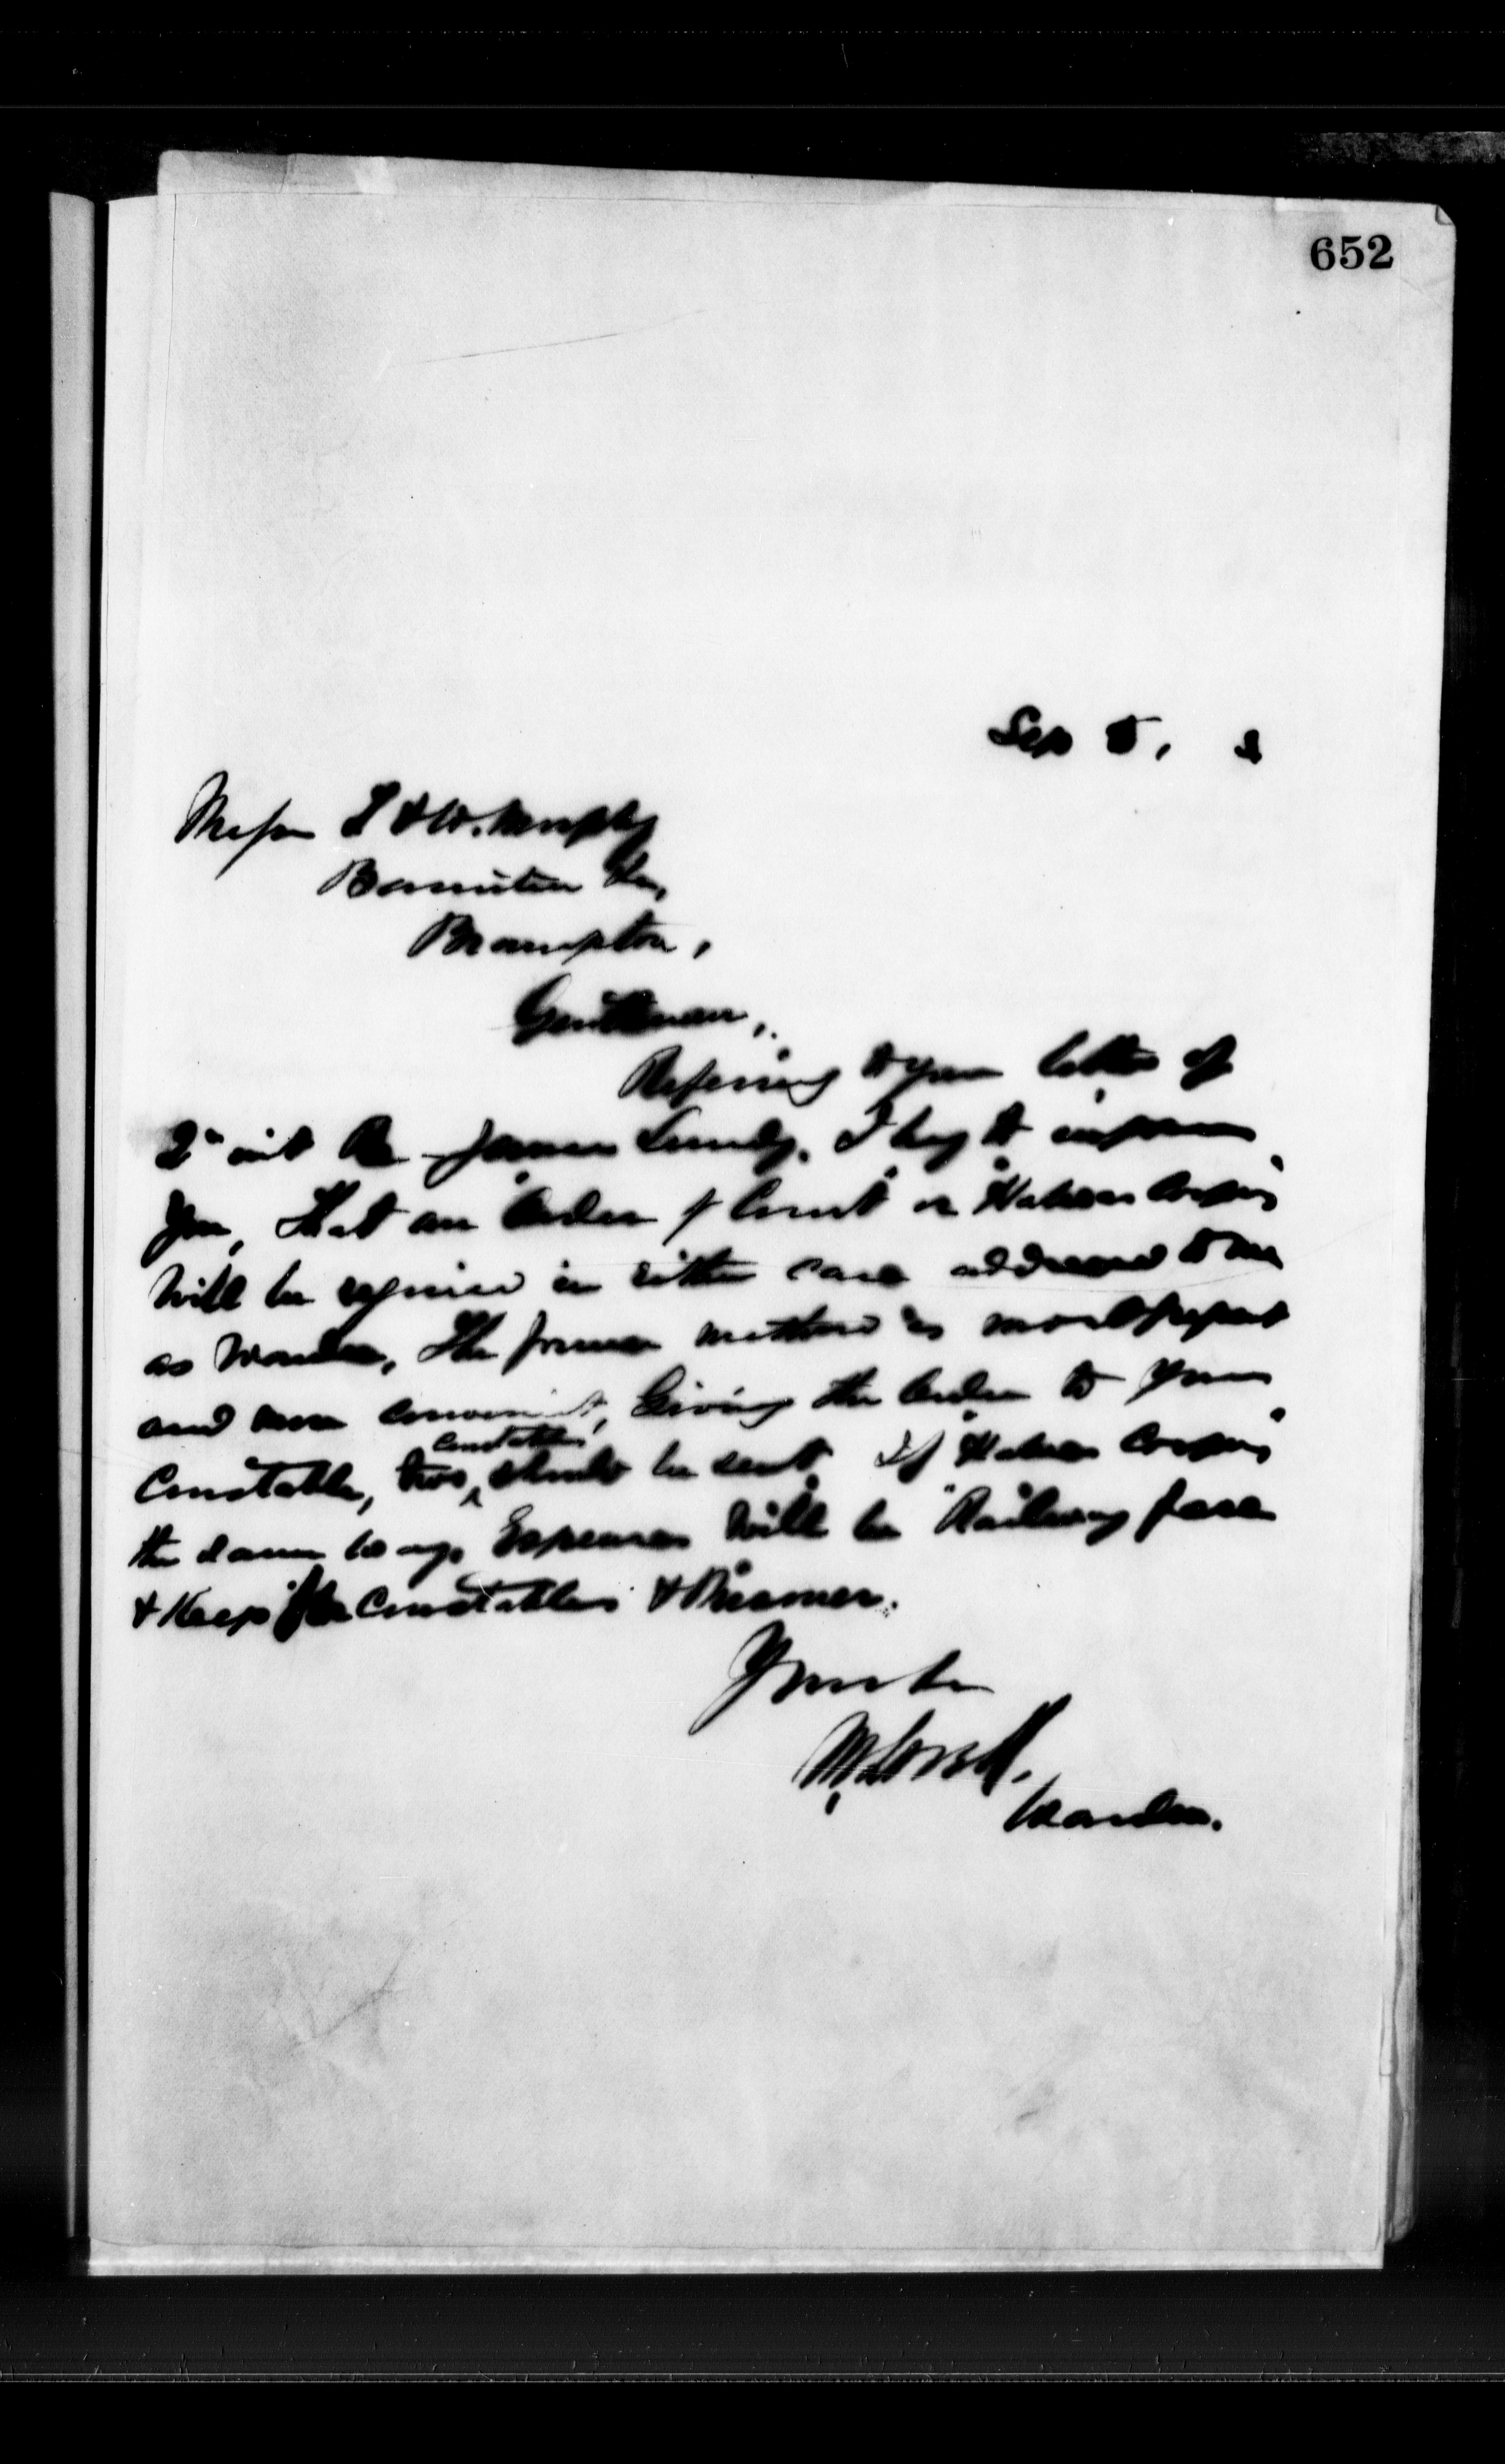 652
Sep 5,
Messrs & W. Murphy
Barrister &c,
Brampton,
Gentlemen,
Referring to your letter of
2" inst Re James Lundy. I beg to inform
you, That an "Order of Court" or "Habeas Corpus"
will be required in either case addressed to me
as Warden, The former method is most frequent
and more convenient, Giving the Order to your
Constable, two constables should be sent. If "Habeas Corpus"
the same way. Expenses will be "Railway fare
& Keep for Constables" & Prisoner.
Yours &c
Warden.